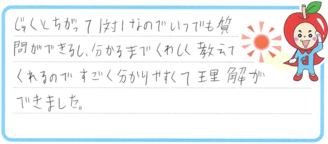 じゅくとちがって1対1なのでいつでも質
問ができるし、分かるまでくわしく教えて
くれるのですごく分かりやすくて理解が
できました。